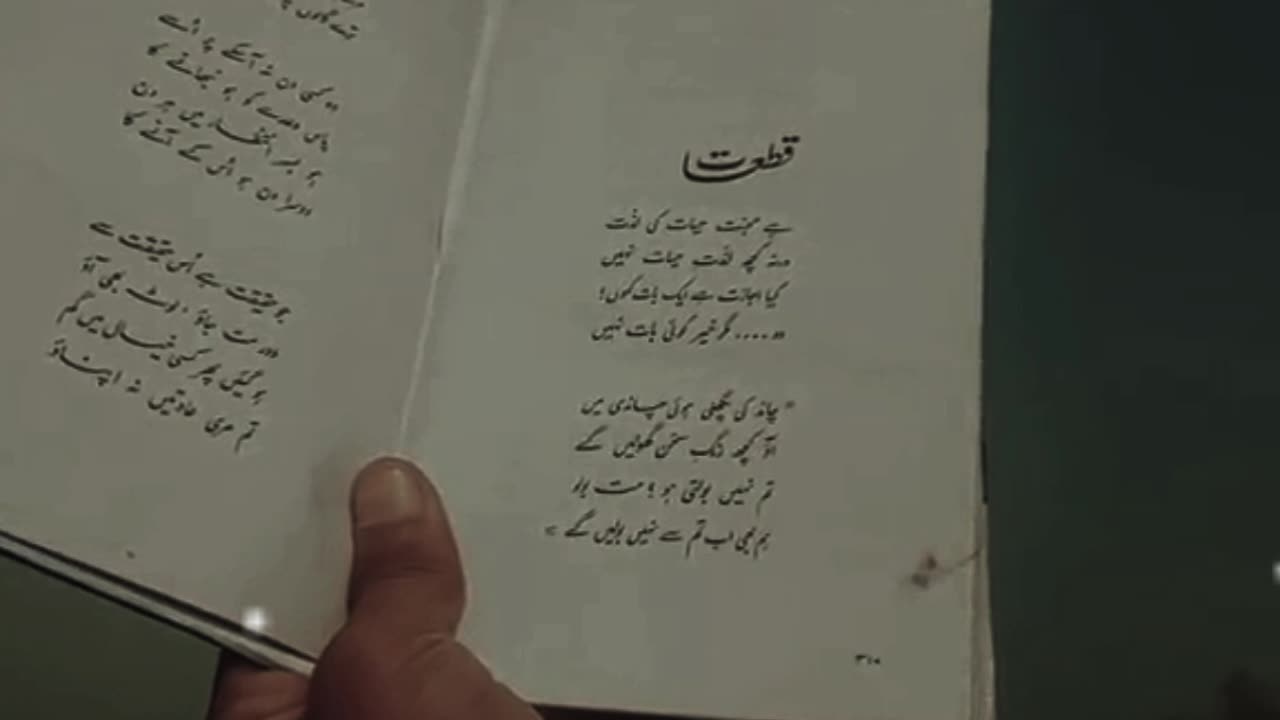 قطعات
ہے محبت حیات کی لذت
ورنہ کچھ لذت حیات نہیں
کیا اجازت ہے ایک بات کہوں؟
وہ .... مگر خیر کوئی بات نہیں
" چاند کی پگھلی ہوئی چاندی میں
آؤ کچھ رنگ سخن گھولیں گے
تم نہیں بولتی ہو؟ مت بولو
ہم بھی اب تم سے نہیں بولیں گے "
کسی دن نہ آ سکے پر اسے
پاس وعدے کو ہو نبھانے کا
ہو بسر انتظار میں ہر دن
دوسرا دن ہو اس کے آنے کا
جو حقیقت ہے اُس حقیقت سے
دور مت جاؤ، لوٹ بھی آؤ
ہو گئیں پھر کسی خیال میں گم
تم مری عادتیں نہ اپناؤ
۳۱۸